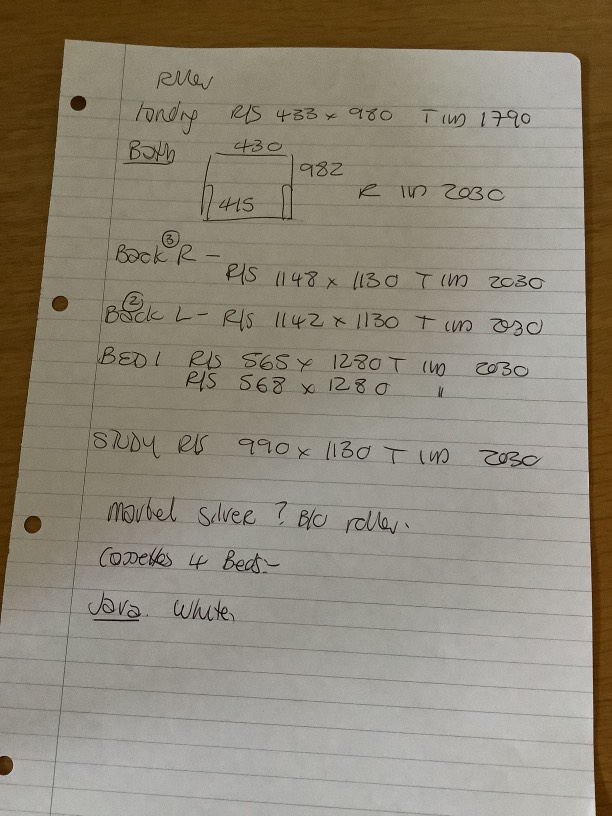 Landry R/S 433 x 980 T IW 1790
Bath 430
982
415 R IW 2030
③
Back R -
R/S 1148 x 1130 T IW 2030
②
Back L - R/S 1142 x 1130 T IW 2030
BED 1 R/S 565 x 1280 T IW 2030
R/S 568 x 1280 "
STUDY R/S 990 x 1130 T IW 2030
Silver ? B/O roller.
4 Beds:-
Java. White,